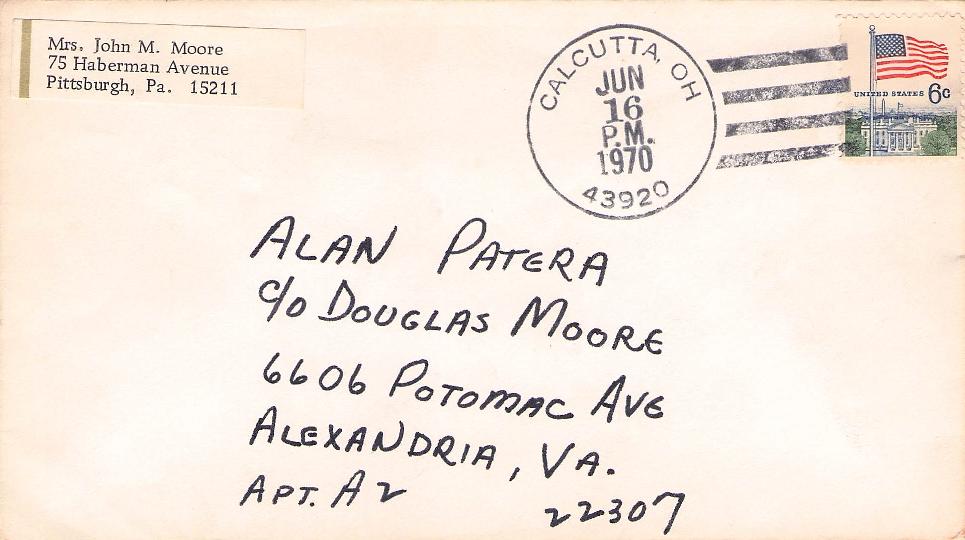 Mrs. John M. Moore
75 Haberman Avenue
Pittsburgh, Pa. 15211
CALCUTTA, OH
JUN
16
P.M.
1970
43920
UNITED STATES 6c
ALAN PATERA
c/o DOUGLAS MOORE
6606 POTOMAC AVE
ALEXANDRIA, VA.
APT. A2 22307